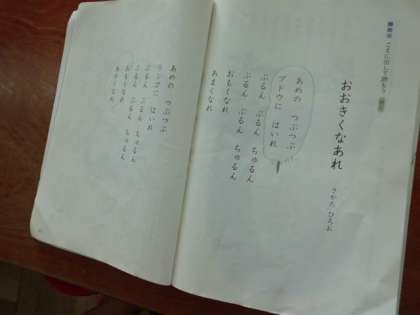 こえに出して読もう
おおきくなあれ
さかた ひろお
あめの つぶつぶ
ブドウに はいれ
ぷるん ぷるん ちゅるん
ぷるん ぷるん ちゅるん
おもくなれ
あまくなれ
あめの つぶつぶ
リンゴに はいれ
ぷるん ぷるん ちゅるん
ぷるん ぷるん ちゅるん
おもくなれ
あかくなれ